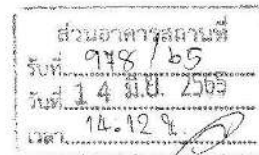 ส่วนอาคารสถานที่
รับที่ 978 / 65
วันที่ 14 มิ.ย. 2565
เวลา 14:12 น.